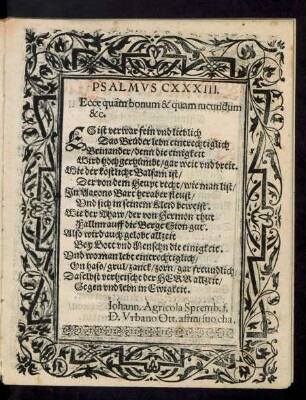 PSALMVS CXXXIII.
Ecce quàm bonum & quam iucundum
&c.
ES ist verwar fein vnd lieblich
Das Brüder lebn eintrechtiglich
Beinander/denn die einigkeit
Wird hoch gerhümbt/gar weit vnd breit.
Wie der köstliche Balsam ist/
Der von dem Heupt recht/wie man list/
In Aarons Bart heraber fleust/
Vnd sich in seinem Kleid beweist.
Wie der Thaw/der von Hermon thut
Falln auff die Berge Sion gut.
Also wird auch gelobt allzeit
Bey Gott vnd Menschn die einigkeit.
Vnd wo man lebt eintrechtiglich/
On hass/grul/zanck/zorn/gar freundlich/
Daselbst verheischt der HERR allzeit/
Segen vnd lebn in Ewigkeit.
Johann. Agricola Spremb. f.
D. Vrbano Ott. affini suo cha.